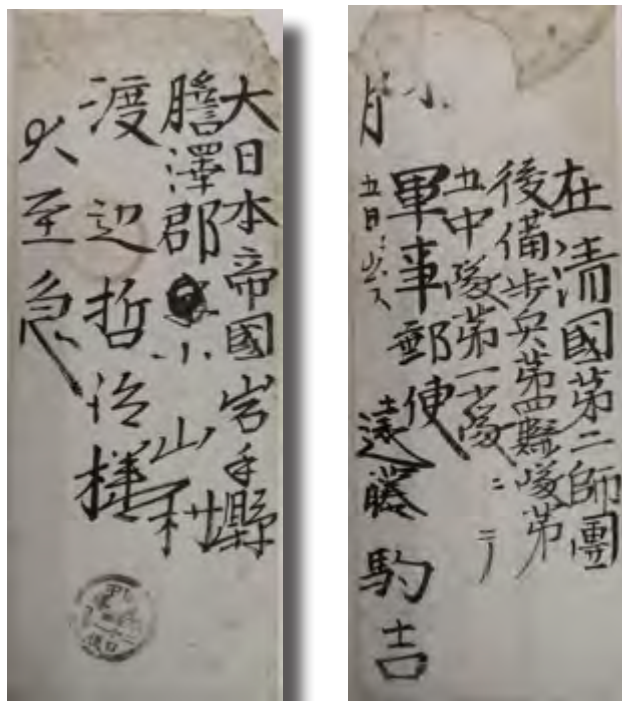 大日本帝國岩手縣
膽澤郡小山村
渡辺哲治様
火至急
在清國第二師團
後備步兵第四聯隊第
五中隊第一小隊ニテ
軍事郵便
遠藤駒吉
月
五日